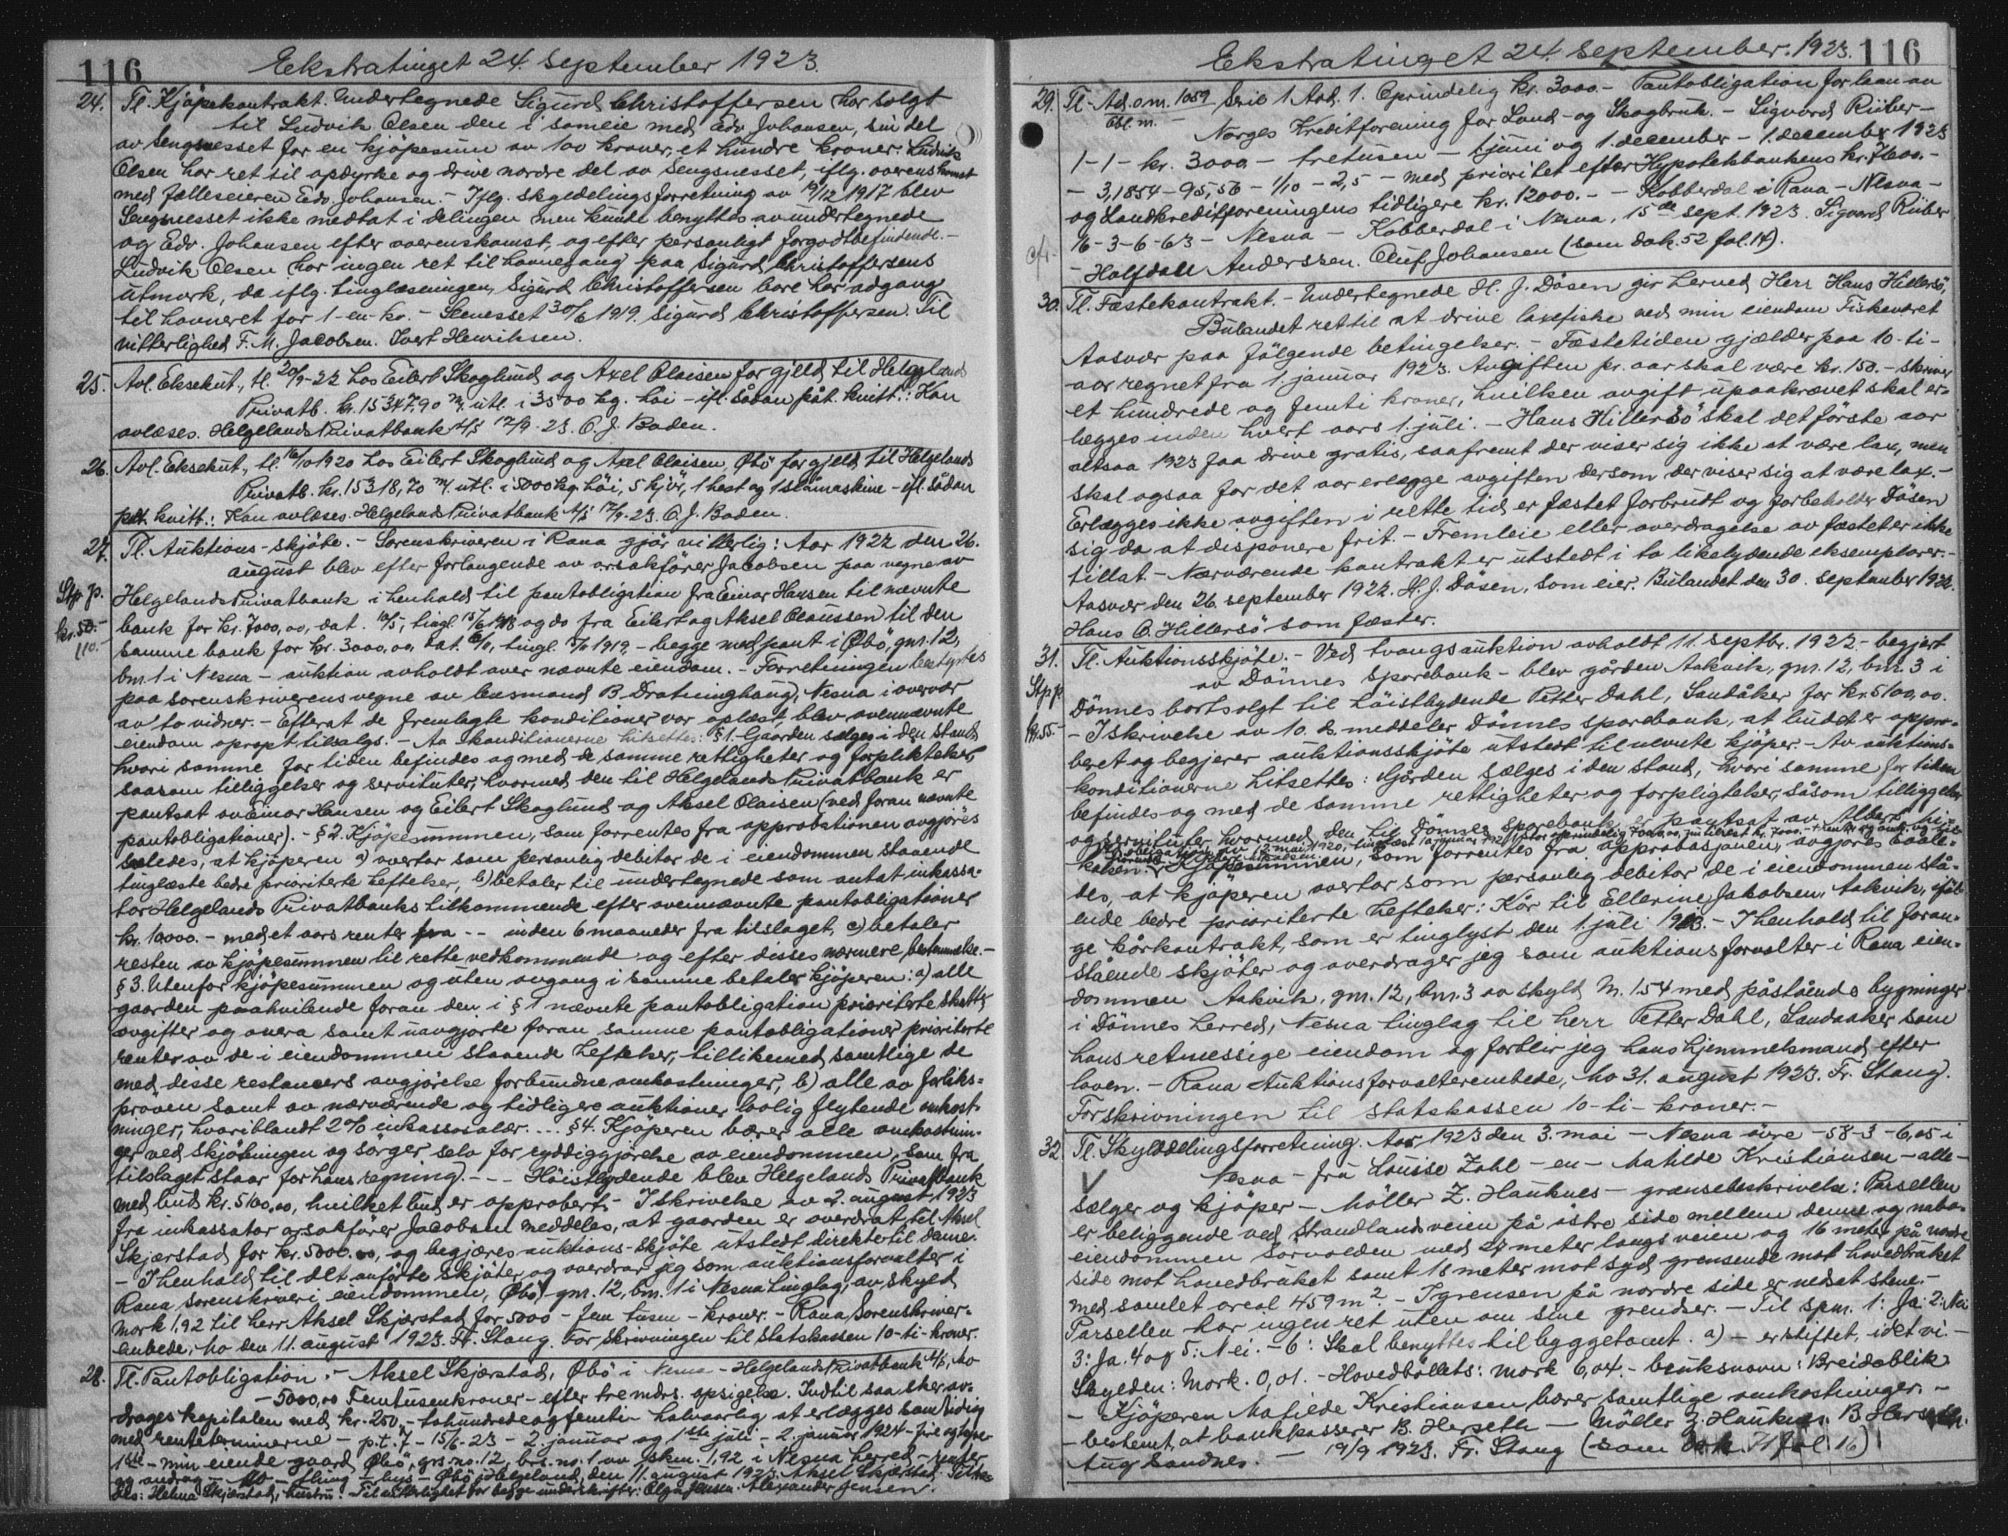 116
Ekstratinget 24. september 1923.
24. Tl. Kjöpekontrakt. Undertegnede Sigurd Christoffersen har solgt
til Ludvik Olsen den i sameie med Edv. Johansen, sin del
av Sengsnesset for en kjöpesum av 100 kroner, et hundre kroner. Ludvik
Olsen har ret til opdyrke og drive nordre del av Sengsnesset, iflg. overenskomst
med fælleseieren Edv. Johansen. - Iflg. skyldelingsforretning av 19/12 1917 blev
Sengsnesset ikke medtat i delingen men kunde benyttes av undertegnede
og Edv. Johansen efter overenskomst, og efter personligt forgodtbefindende. -
Ludvik Olsen har ingen ret til havnegang paa Sigurd Christoffersens
utmark, da iflg. tinglæsningen, Sigurd Christoffersen bare har adgang
til havneret for 1 - en - ko. - 30/6 1919. Sigurd Christoffersen. Til
vitterlighed F. M. Jacobsen. Ivert Henriksen.
25. Avl. Eksekut., tl. 20/9-22 hos Eilert Skoglund og Axel Olaisen for gjeld til Helgelands
Privatb. kr. 15347.90 m. utl. i 3500 kg. höi - ifl. sådan påt. kvitt.: Kan
avlæses. Helgelands Privatbank A/S 17/9-23. O. J. Baden.
26. Avl. Eksekut., tl. 16/10 1920 hos Eilert Skoglund og Axel Olaisen, Øbö for gjeld til Helgelands
Privatb. kr. 15318,70 m. utl. i 5000 kg. höi, 5 kjör, 1 hest og 1 slåmaskine - ifl. sådan
påt. kvitt.: Kan avlæses. Helgelands Privatbank A/S 17/9-23. O. J. Baden.
27. Tl. Auktions-skjöte. - Sorenskriveren i Rana gjör vitterlig: Aar 1922 den 26.
august blev efter forlangende av orsakförer Jacobsen paa vegne av
Stp. p. Helgelands Privatbank i henhold til pantobligation fra Einar Hansen til nævnte
kr. 50.- bank for kr. 7000,00, dat. 10/5, tingl. 15/6 1918 og do fra Eilert og Aksel Olaussen til den
110.- samme bank for kr. 3000,00 dat. tingl. 1919. - begge med pant i Øbö, gnr. 12,
bnr. 1 i Nesna - auktion avholdt over nævnte eiendom. - Forretningen bestyrtes
paa sorenskriverens vegne av lensmand B. Drotninghaug, Nesna i overvær
av to vidner. - Efterat de fremlagte konditioner var oplæst, blev ovennævnte
eiendom opropt tilsalgs. - Av konditionerne hitsettes: § 1. Gaarden sælges i den stand
hvori samme for tiden befindes og med de samme rettigheter og forpliktelser,
saasom tilliggelser og servituter, hvormed den til Helgelands Privatbank er
pantsat av Einar Hansen og Eilert Skoglund og Aksel Olaisen (ved foran nævnte
pantobligationer). - § 2. Kjöpesummen, som forrentes fra approbationen avgjöres
saaledes, at kjöperen a) overtar som personlig debitor de i eiendommen staaende
tinglæste bedre prioriterte heftelser, b) betaler til undertegnede som antat inkassa-
tor Helgelands Privatbanks tilkommende efter ovennævnte pantobligationer
kr. 10000. - med et aars renter fra - - inden 6 maaneder fra tilslaget, c) betaler
resten av kjöpesummen til rette vedkommende og efter disses nærmere bestemmelse. -
§ 3. Utenfor kjöpesummen og uten avgang i samme betaler kjöperen: a) alle
gaarden paahvilende foran den i § 1 nævnte pantobligation prioriterte skatter,
avgifter og onera samt uavgjorte foran samme pantobligationer prioriterte
renter av de i eiendommen staaende heftelser, tillikemed samtlige de
med disse restancers avgjörelse forbundne omkostninger, b) alle av forliks-
pröven samt av nærværende og tidligere auktioner lovlig flytende omkost-
ninger, hvoriblandt 2% inkassosalær. ... § 4. Kjöperen bærer alle omkostnin-
ger ved skjötningen og sörger selv for ryddiggjörelse av eiendommen, som fra
tilslaget staar for hans regning. - - - Höistbydende blev Helgelands Privatbank
med bud kr. 5100,00, hvilket bud er approbert. - I skrivelse av 2. august 1923
fra inkassator orsakförer Jacobsen meddeles, at gaarden er overdrat til Aksel
Skjærstad for kr. 5000.00, og begjæres auktions-skjöte utstedt direkte til denne.
- I henhold til det anförte skjöter og overdrar jeg som auktionsforvalter i
Rana sorenskriveri eiendommen, Øbö, gnr. 12, bnr. 1 i Nesna tinglag, av skyld
mark 1,92 til herr Aksel Skjærstad for 5000 - fem tusen - kroner. - Rana Sorenskriver-
embede, Mo den 11. august 1923. Fr. Stang. Forskrivningen til statskassen 10-ti-kroner.
28. Tl. Pantobligation. - Aksel Skjærstad, Øbö i Nesna - Helgelands Privatbank A/S, Mo
- 5000,00 Femtusenkroner - efter tre mdrs. opsigelse. Indtil saa sker av-
drages kapitalen med kr. 250,- tohundredeogfemti - halvaarlig at erlægges samtidig
med renteterminerne - p.t. 7 - 15/6-23 - 2. januar og 1ste juli - 2. januar 1924 -
1ste - min eiende gaard Øbö, grs.no. 12, brs.no. 1 av skm. 1,92 i Nesna herred - renter
og avdrag - Mo - - hus - Øbö i Helgeland, den 11. august 1923. Aksel Skjærstad.
Helma Skjærstad, hustru. Til vitterlighet for begge underskrifter: Olga Jensen. Alexander Jensen.
Ekstratinget 24. september. 1923. 116
29. Tl. Ad. o.m. 1059 Serie 1 Avd. 1. Oprindelig kr. 3000.- Pantobligation for laan av
Obl. m. - Norges Kreditforening for Land- og Skogbruk. - Sigvard Rüber -
1 - 1 - kr. 3000 - tretusen - 1 juni og 1. december - 1. december 1923
- 3,1854 - 95,56 - 1/10 - 2,5 - med prioritet efter Hypotekbankens kr. 7600.-
og Landkreditforeningens tidligere kr. 12000. - Kobberdal i Rana - Nesna -
16-3-6-63 - Nesna - Kobberdal i Nesna, 15de sept. 1923. Sigvard Rüber
cfr. - Halfdan Anderssen. Oluf Johansen (som dok. 52 fol. 14).
30. Tl. Fæstekontrakt. - Undertegnede H. J. Dösen gir herved Herr Hans Hillersö,
Bulandet ret til at drive laxefiske ved min eiendom Fiskeværet
Aasvær paa fölgende betingelser. - Fæstetiden gjælder paa 10-ti-
aar regnet fra 1. januar 1923. Avgiften pr. aar skal være kr. 150.- skriver
et hundrede og femti kroner, hvilken avgift upaakrævet skal er-
lægges inden hvert aars 1. juli. - Hans Hillersö skal det förste aar
altsaa 1923 faa drive gratis, saafremt der viser sig ikke at være lax, men
skal ogsaa for det aar erlægge avgiften dersom der viser sig at være lax. -
Erlægges ikke avgiften i rette tid er fæstet forbrudt og forbeholder Dösen
sig da at disponere frit. - Fremleie eller overdragelse av fæstet er ikke
tillat. - Nærværende kontrakt er utstedt i to likelydende eksemplarer. -
Aasvær den 26. september 1922. H. J. Dösen, som eier. Bulandet den 30. september 1922.
Hans O. Hillersö som fæster.
31. Tl. Auktionsskjöte. - Ved tvangsauktion avholdt 11. septbr. 1922 - begjert
av Dönnes sparebank - blev gården Aakvik, gnr. 12, bnr. 3 i
Stp. p. Dönnes bortsolgt til höistbydende Petter Dahl, Sandåker for kr. 5100,00.
kr. 55.- - I skrivelse av 10. ds. meddeler Dönnes sparebank, at budet er appro-
beret og begjerer auktionsskjöte utstedt til nevnte kjöper. - Av auktions-
konditionerne hitsettes: Gården sælges i den stand, hvori samme for tiden
befindes og med de samme rettigheter og forpligtelser, såsom tilliggelser
og servituter, hvormed den til Dönnes sparebank er pantsat av Albert Mi-
kalsen. Kjöpesummen, som forrentes fra approbasjonen, avgjöres således,
des, at kjöperen overtar som personlig debitor de i eiendommen stå-
ende bedre prioriterte heftelser: Kår til Ellerine Jakobsen, Aakvik, iföl-
ge kårkontrakt, som er tinglyst den 1. juli - I henhold til foran-
stående skjöter og overdrager jeg som auktionsforvalter i Rana eien-
dommen Aakvik, gnr. 12, bnr. 3 av skyld m. 1.54 med påstående bygninger
i Dönnes herred, Nesna tinglag til herr Petter Dahl, Sandaaker som
hans retmessige eiendom og forblir jeg hans hjemmelsmand efter
loven. - Rana Auktionsforvalterembede, Mo 31. august 1923. Fr. Stang.
Forskrivningen til statskassen 10-ti-kroner. -
32. Tl. Skylddelingsforretning. Aar 1923 den 3. mai - Nesna övre - 58-3-6,05 i
Nesna - fru Louise Zahl - en - Matilde Kristiansen - alle -
sælger og kjöper - Möller Z. Hauknes - grænsebeskrivelse: Parsellen
er beliggende ved Strandlandsveien på östre side mellem denne og nabo-
eiendommen Sörvolden med 27 meter langs veien og 16 meter på nordre
side mot hovedbruket samt 18 meter mot syd grensende mot hovedbruket
med samlet areal 459 m². - I grensen på nordre side er nedsat stene. -
Parsellen har ingen ret uten om sine grenser. - Til spm. 1: Ja. 2: Nei
3: Ja. 4 og 5: Nei. - 6: Skal benyttes til byggetomt. a) - er skiftet, idet vi -
Skylden: Mark. 0,01. - Hovedböllets: mark 6,04. - bruksnavn: Breidablik
- Kjöperen Matilde Kristiansen bærer samtlige omkostninger. -
- bestemt, at bankkasserer B. Herseth - Möller Z. Hauknes. B. Herseth.
Aug Sandnes. - 19/9 1923. Fr. Stang (som dok. 71 fol. 16)